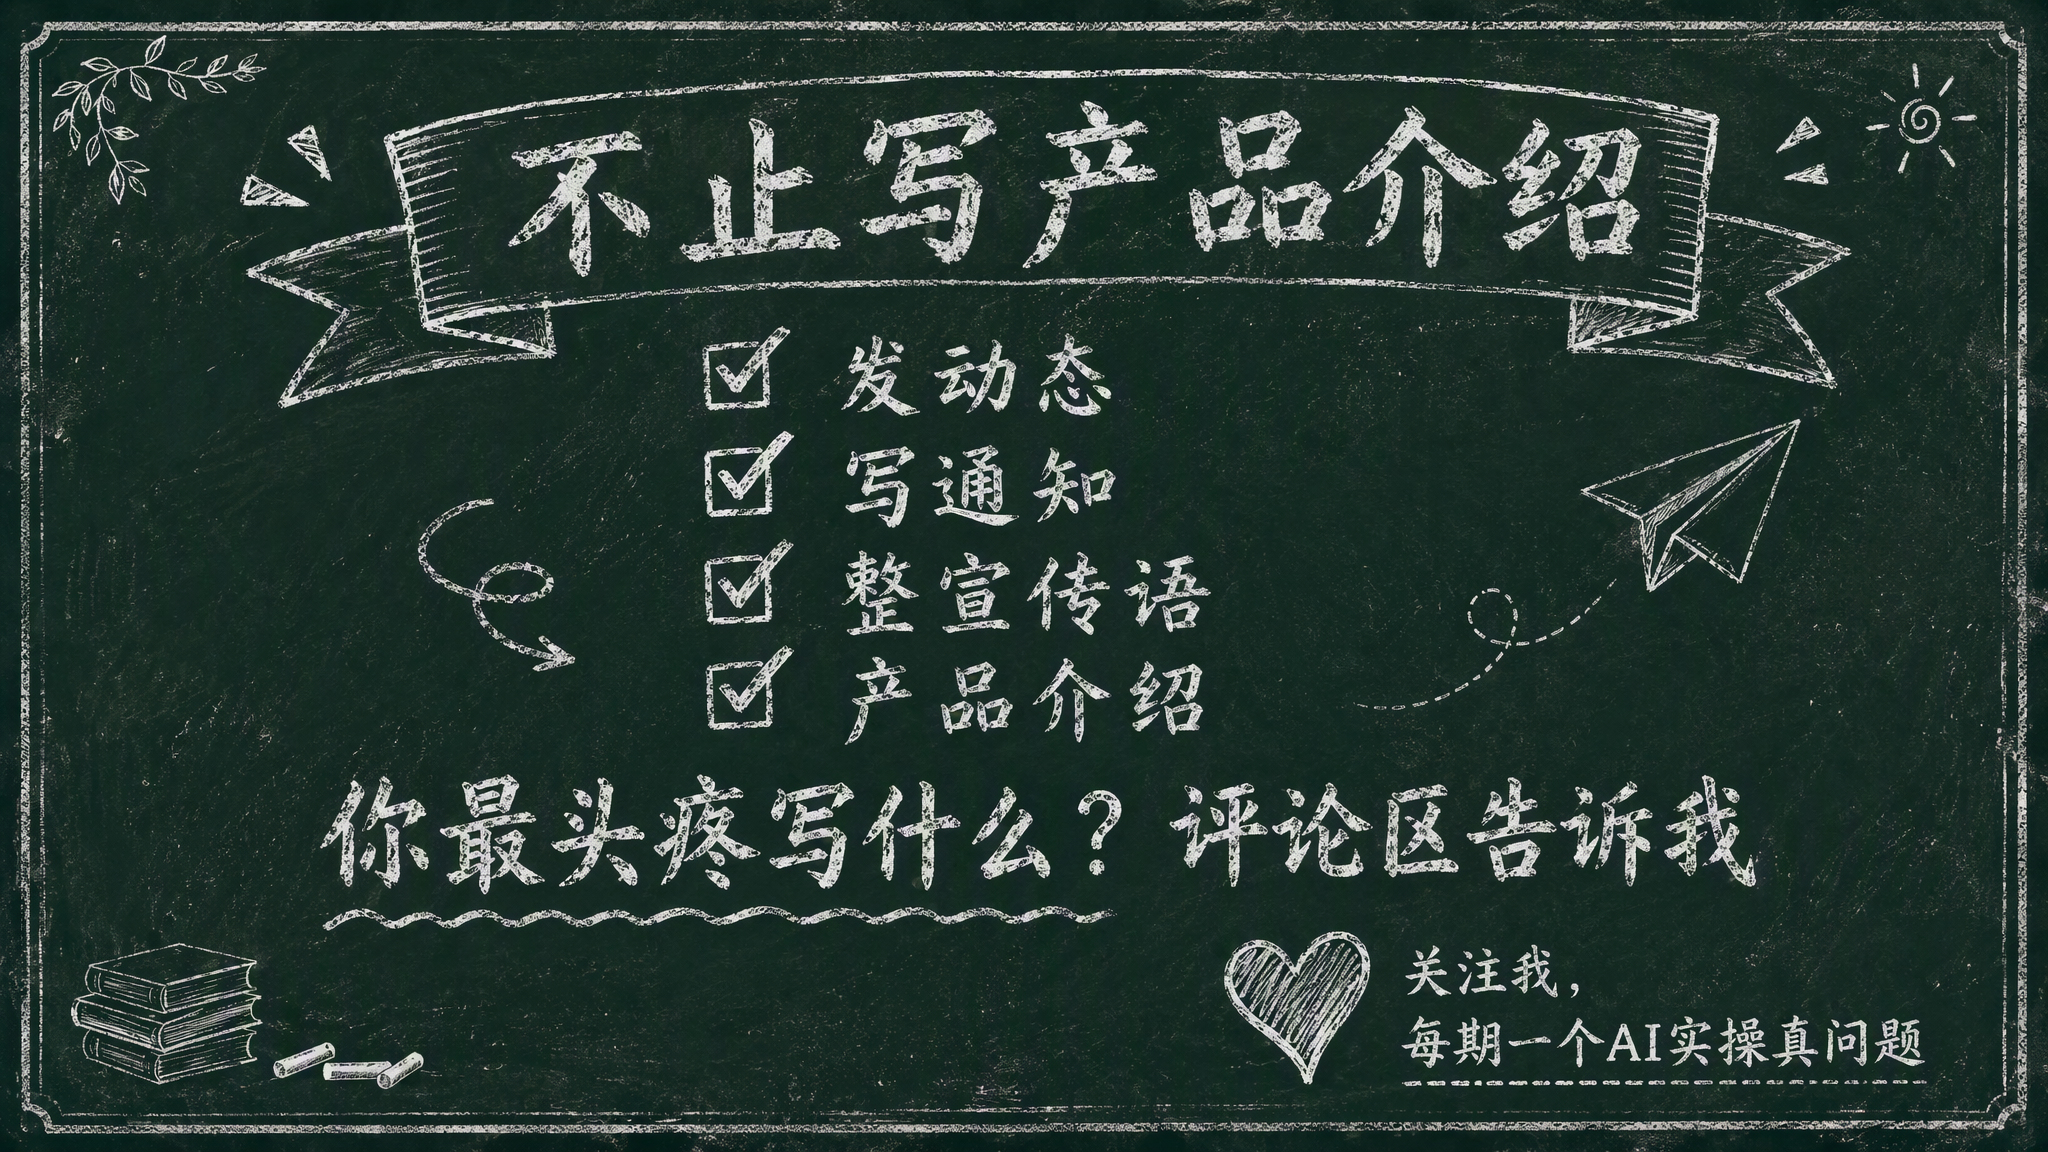 不止写产品介绍
发动态
写通知
整宣传语
产品介绍
你最头疼写什么？评论区告诉我
关注我，
每期一个AI实操真问题